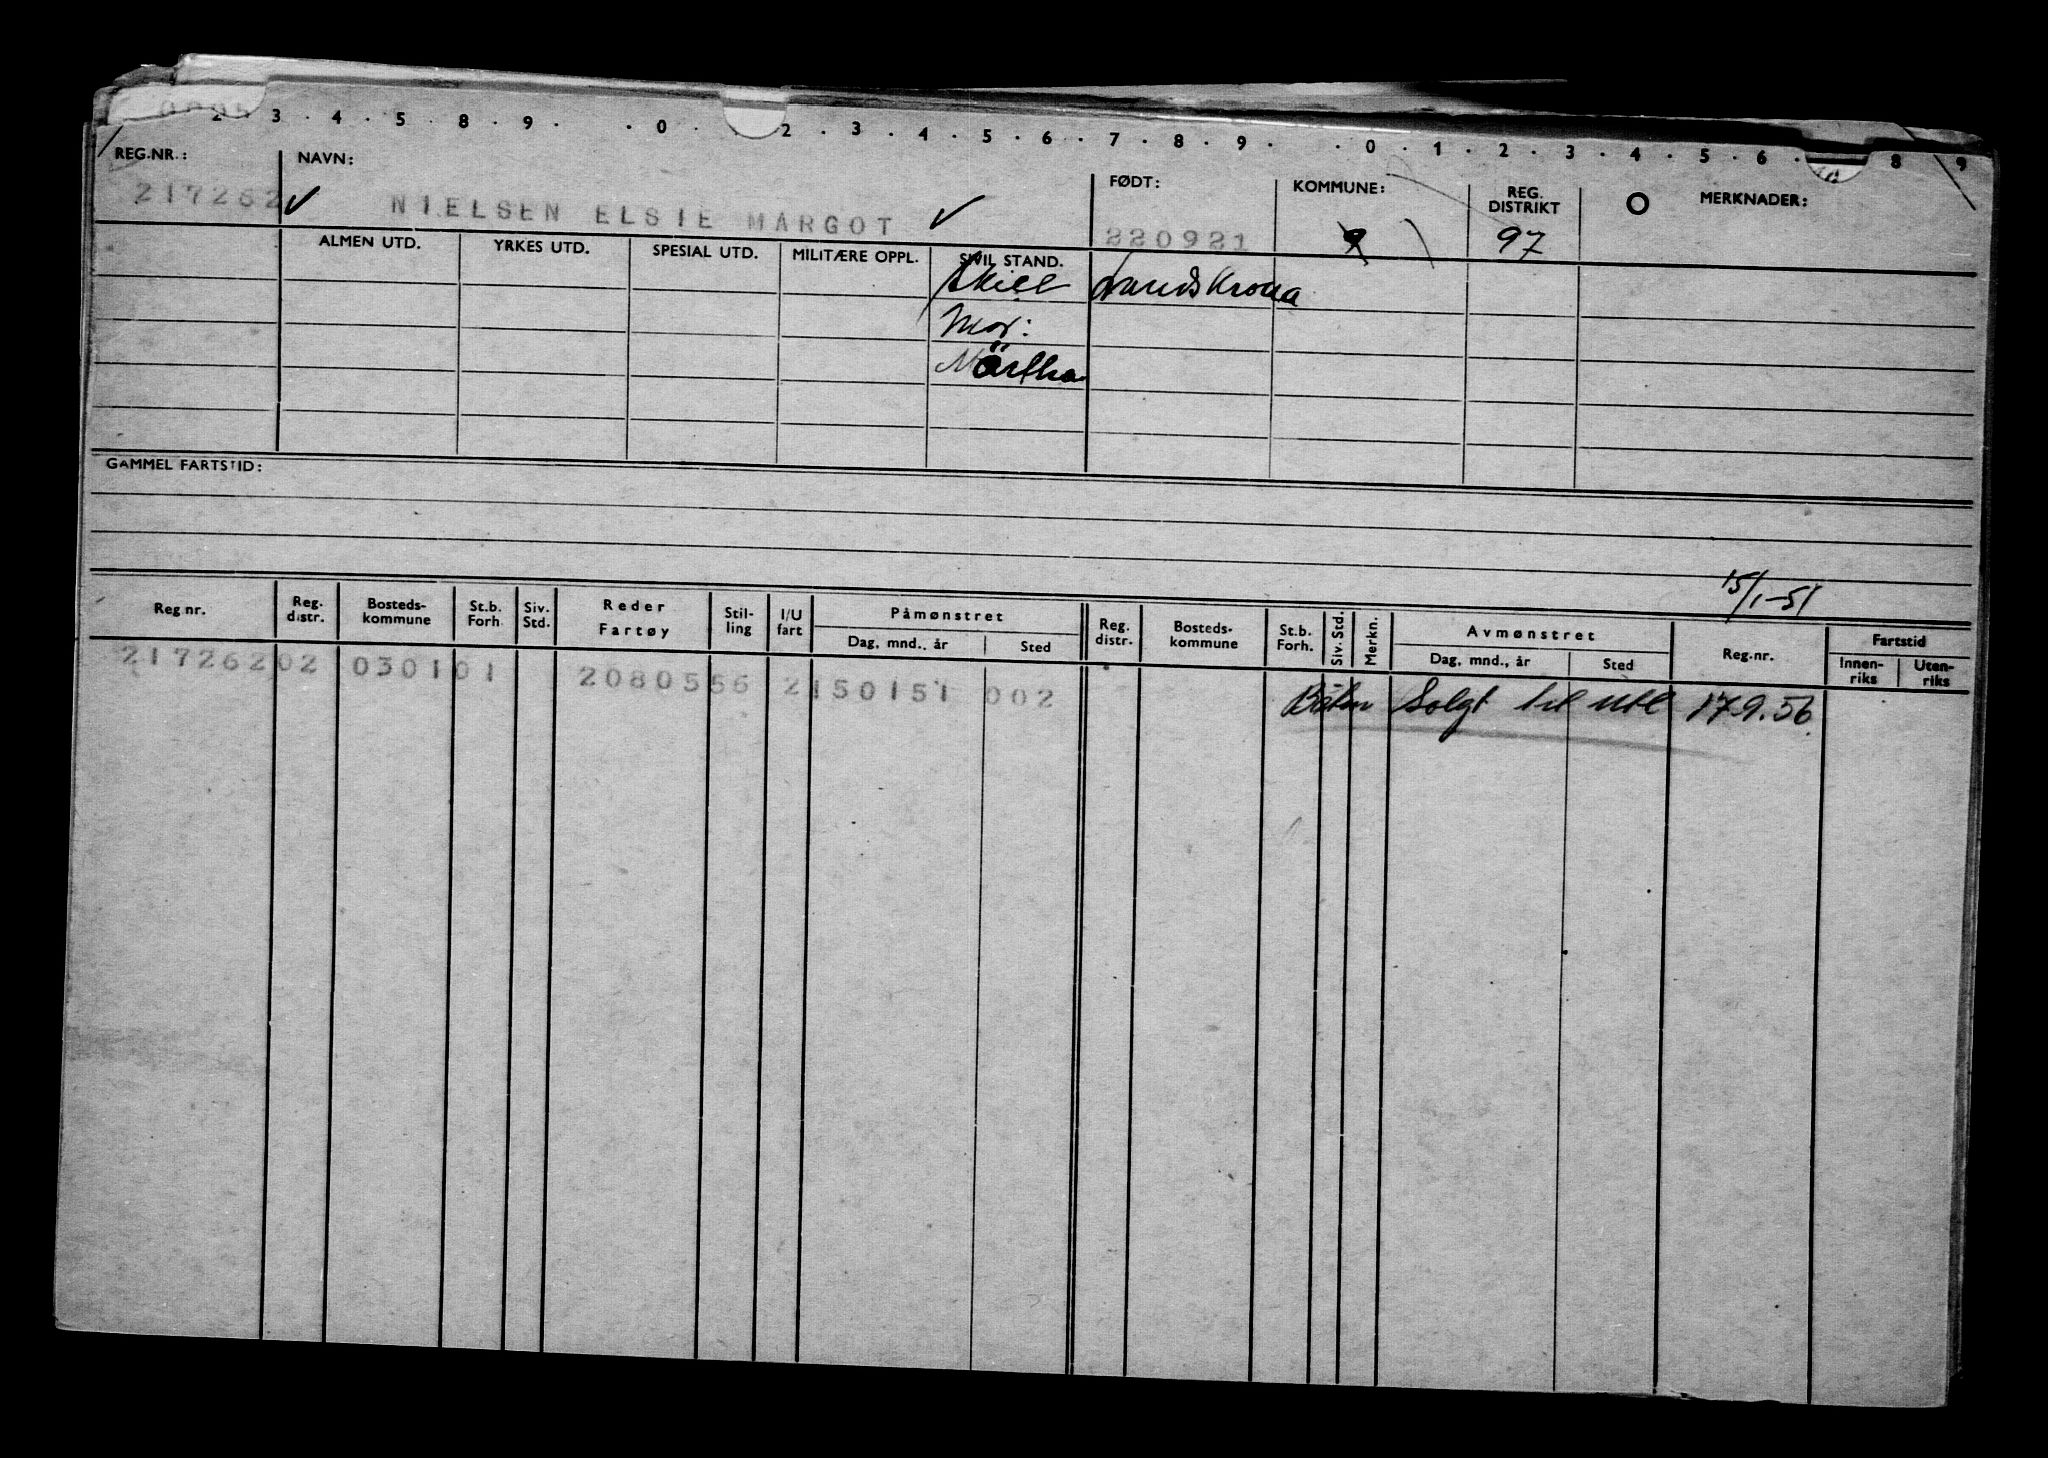 2 . 3 . 4 . 5 . 8 . 9 . . 0 . 2 . 3 . 4 . 5 . 6 . 7 . 8 . 9 . . 0 . 1 . 2 . 3 . 4 . 5 . 6 . 8 9
REG.NR.: NAVN: FØDT: KOMMUNE: REG. DISTRIKT MERKNADER:
217262 ✓ NIELSEN ELSIE MARGOT ✓ 220921 9 97
ALMEN UTD. YRKES UTD. SPESIAL UTD. MILITÆRE OPPL. SIVIL STAND.
Skilt Landskrona
Mor:
Märtha
GAMMEL FARTSTID:
15/1-51
Reg nr. Reg. distr. Bosteds-kommune St.b. Forh. Siv. Std. Reder Fartøy Stil-ling I/U fart Påmønstret Dag, mnd., år Sted Reg. distr. Bosteds-kommune St.b. Forh. Siv. Std. Merkn. Avmønstret Dag, mnd., år Sted Reg.nr. Fartstid Innen-riks Uten-riks
217262 02 0301 01 20805 56 2 150151 002 Båten Solgt til utl 17.9.56